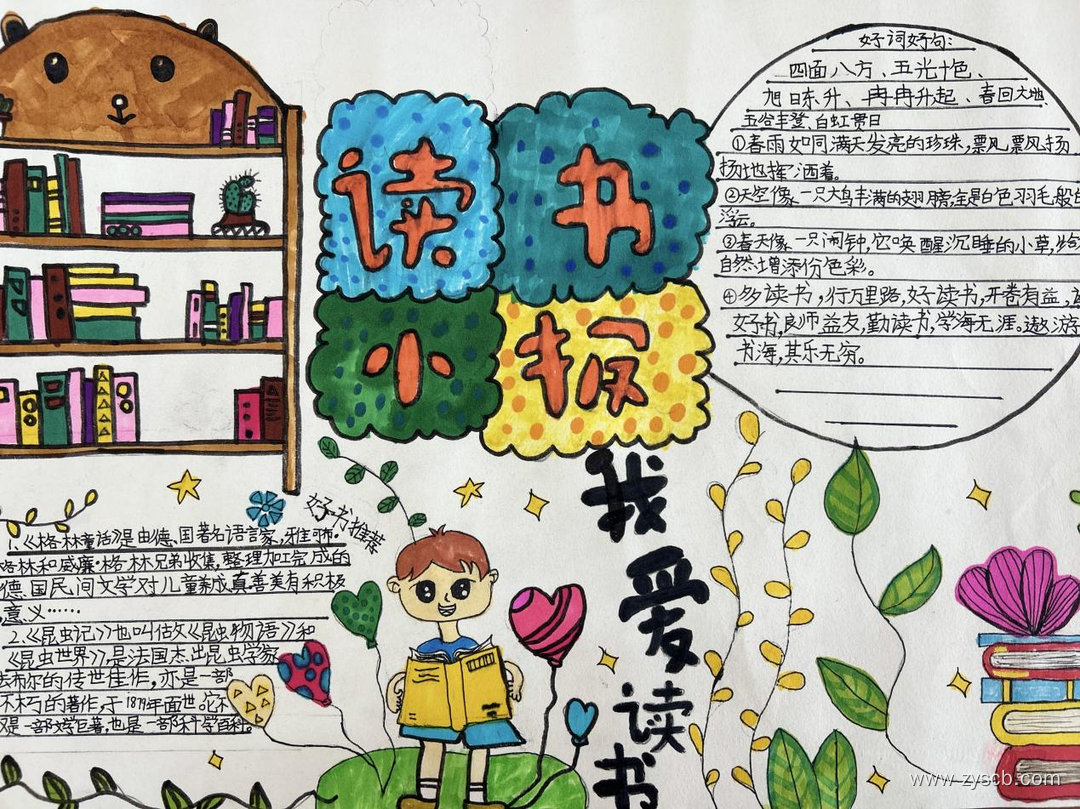 读书
小报
我爱读书
好词好句:
四面八方、五光十色、
旭日东升、冉冉升起、春回大地
五谷丰登、白虹贯日
①春雨如同满天发亮的珍珠,飘飘扬
扬地挥洒着。
②天空像一只大鸟丰满的翅膀,全是白色羽毛般的
浮云。
③春天像一只闹钟,它唤醒沉睡的小草,给
自然增添份色彩。
④多读书,行万里路,好读书,开卷有益,
好书,良师益友,勤读书,学海无涯。遨游
书海,其乐无穷。
好书推荐
1.《格林童话》是由德国著名语言家,雅·
格林和威廉·格林兄弟收集,整理加工完成的
德国民间文学对儿童养成真善美有积极
意义……
2.《昆虫记》也叫做《昆虫物语》和
《昆虫世界》,是法国杰出昆虫学家
布尔的传世佳作,亦是一部
不朽的著作,于1879年面世。它不
又是一部文学巨著,也是一部科学百科。
www.zyscb.com